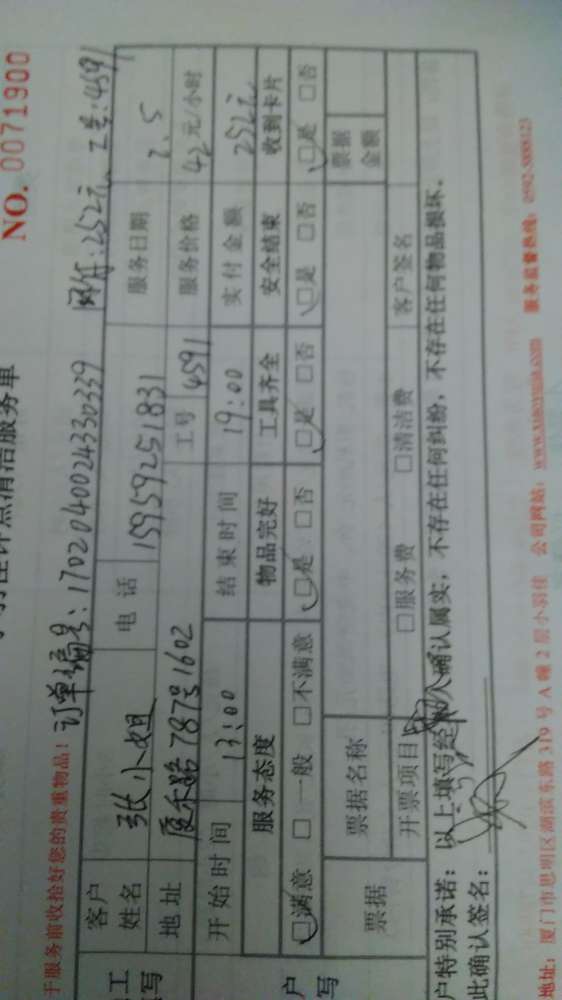 NO. 0071900
计点清洁服务单
于服务前收拾好您的贵重物品！
订单编号：1702040024330339 网付：252元、工号：4591
客户姓名 张小姐 电话 15959251831 服务日期 2.5
地址 厦禾路787号1602 工号 4591 服务价格 42元/小时
开始时间 13:00 结束时间 19:00 实付金额 252元
服务态度 物品完好 工具齐全 安全结束 收到卡片
☑满意 □一般 □不满意 ☑是 □否 ☑是 □否 ☑是 □否 ☑是 □否
票据 票据名称 票据金额
开票项目 □服务费 □清洁费 客户签名
户特别承诺：以上填写经本人确认属实，不存在任何纠纷，不存在任何物品损坏。
此确认签名：
地址：厦门市思明区湖滨东路319号A幢2层小羽佳 公司网站：www.xiaoyujia.com 服务监督热线：0592-5888123